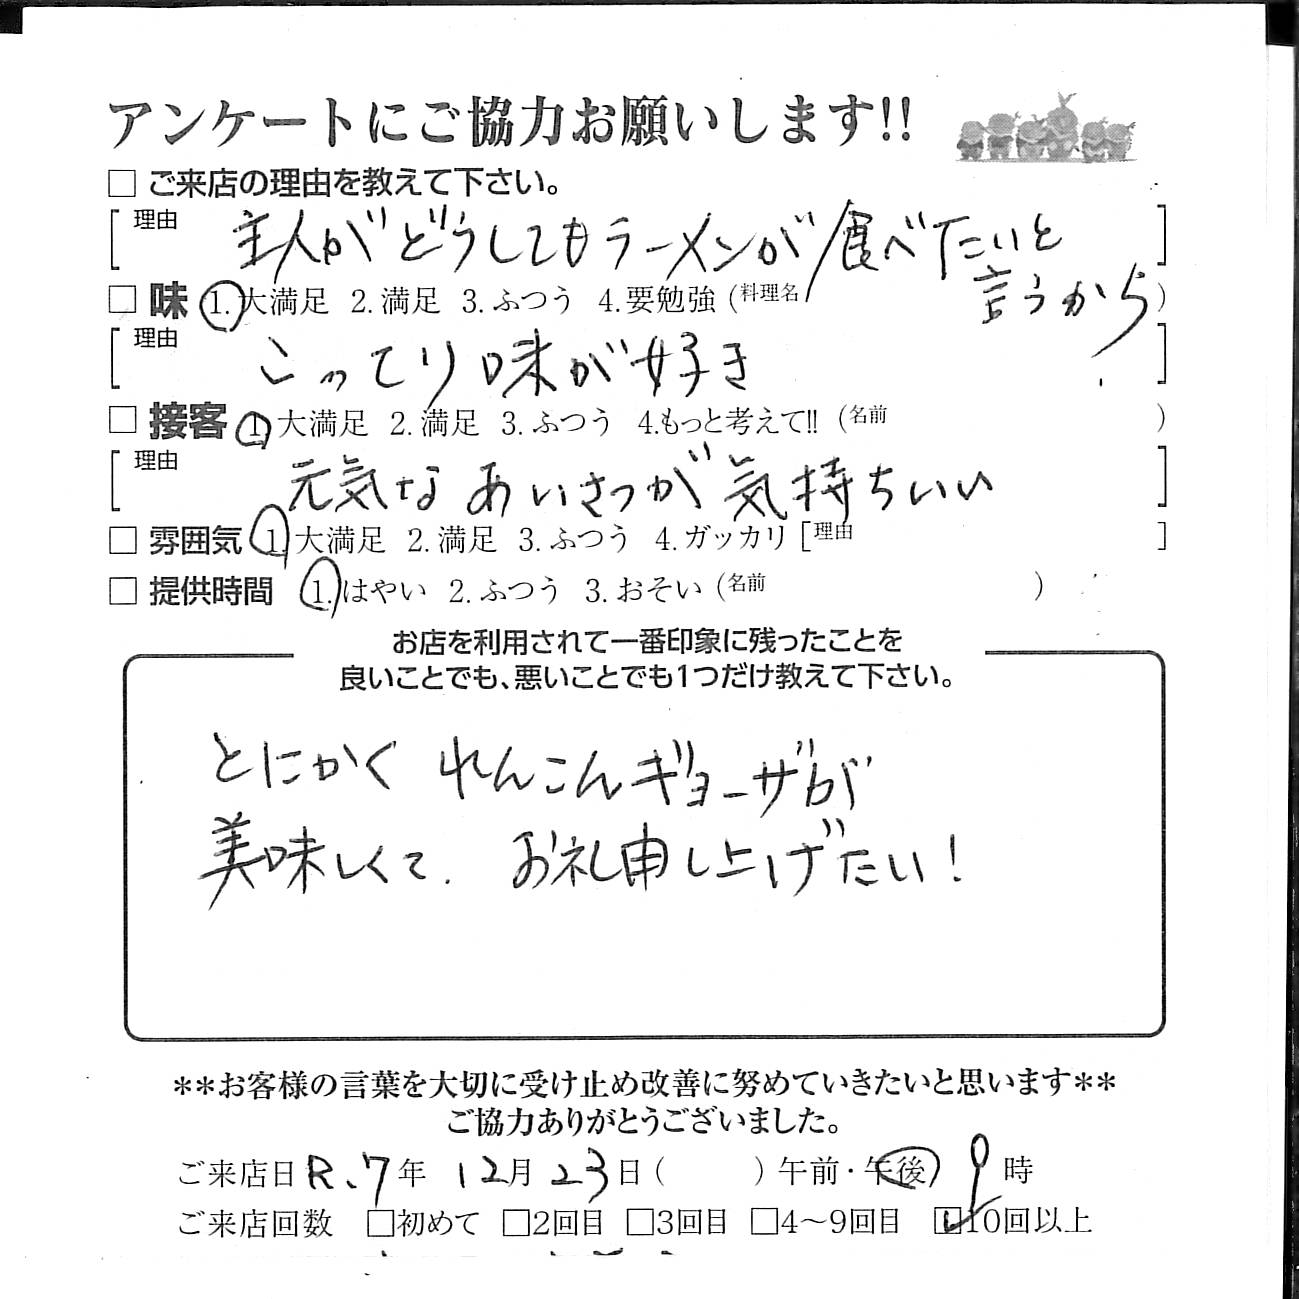 アンケートにご協力お願いします!!
□ ご来店の理由を教えて下さい。
[理由 主人がどうしてもラーメンが食べたいと言うから]
□ 味 1.大満足 2.満足 3.ふつう 4.要勉強 (料理名 )
[理由 こってり味が好き]
□ 接客 1.大満足 2.満足 3.ふつう 4.もっと考えて!! (名前 )
[理由 元気なあいさつが気持ちいい]
□ 雰囲気 1.大満足 2.満足 3.ふつう 4.ガッカリ [理由 ]
□ 提供時間 1.はやい 2.ふつう 3.おそい (名前 )
お店を利用されて一番印象に残ったことを
良いことでも、悪いことでも1つだけ教えて下さい。
とにかく れんこんギョーザが
美味しくて. お礼申し上げたい!
**お客様の言葉を大切に受け止め改善に努めていきたいと思います**
ご協力ありがとうございました。
ご来店日 R.7年 12月23日( )午前・午後 9時
ご来店回数 □初めて □2回目 □3回目 □4〜9回目 ☑10回以上